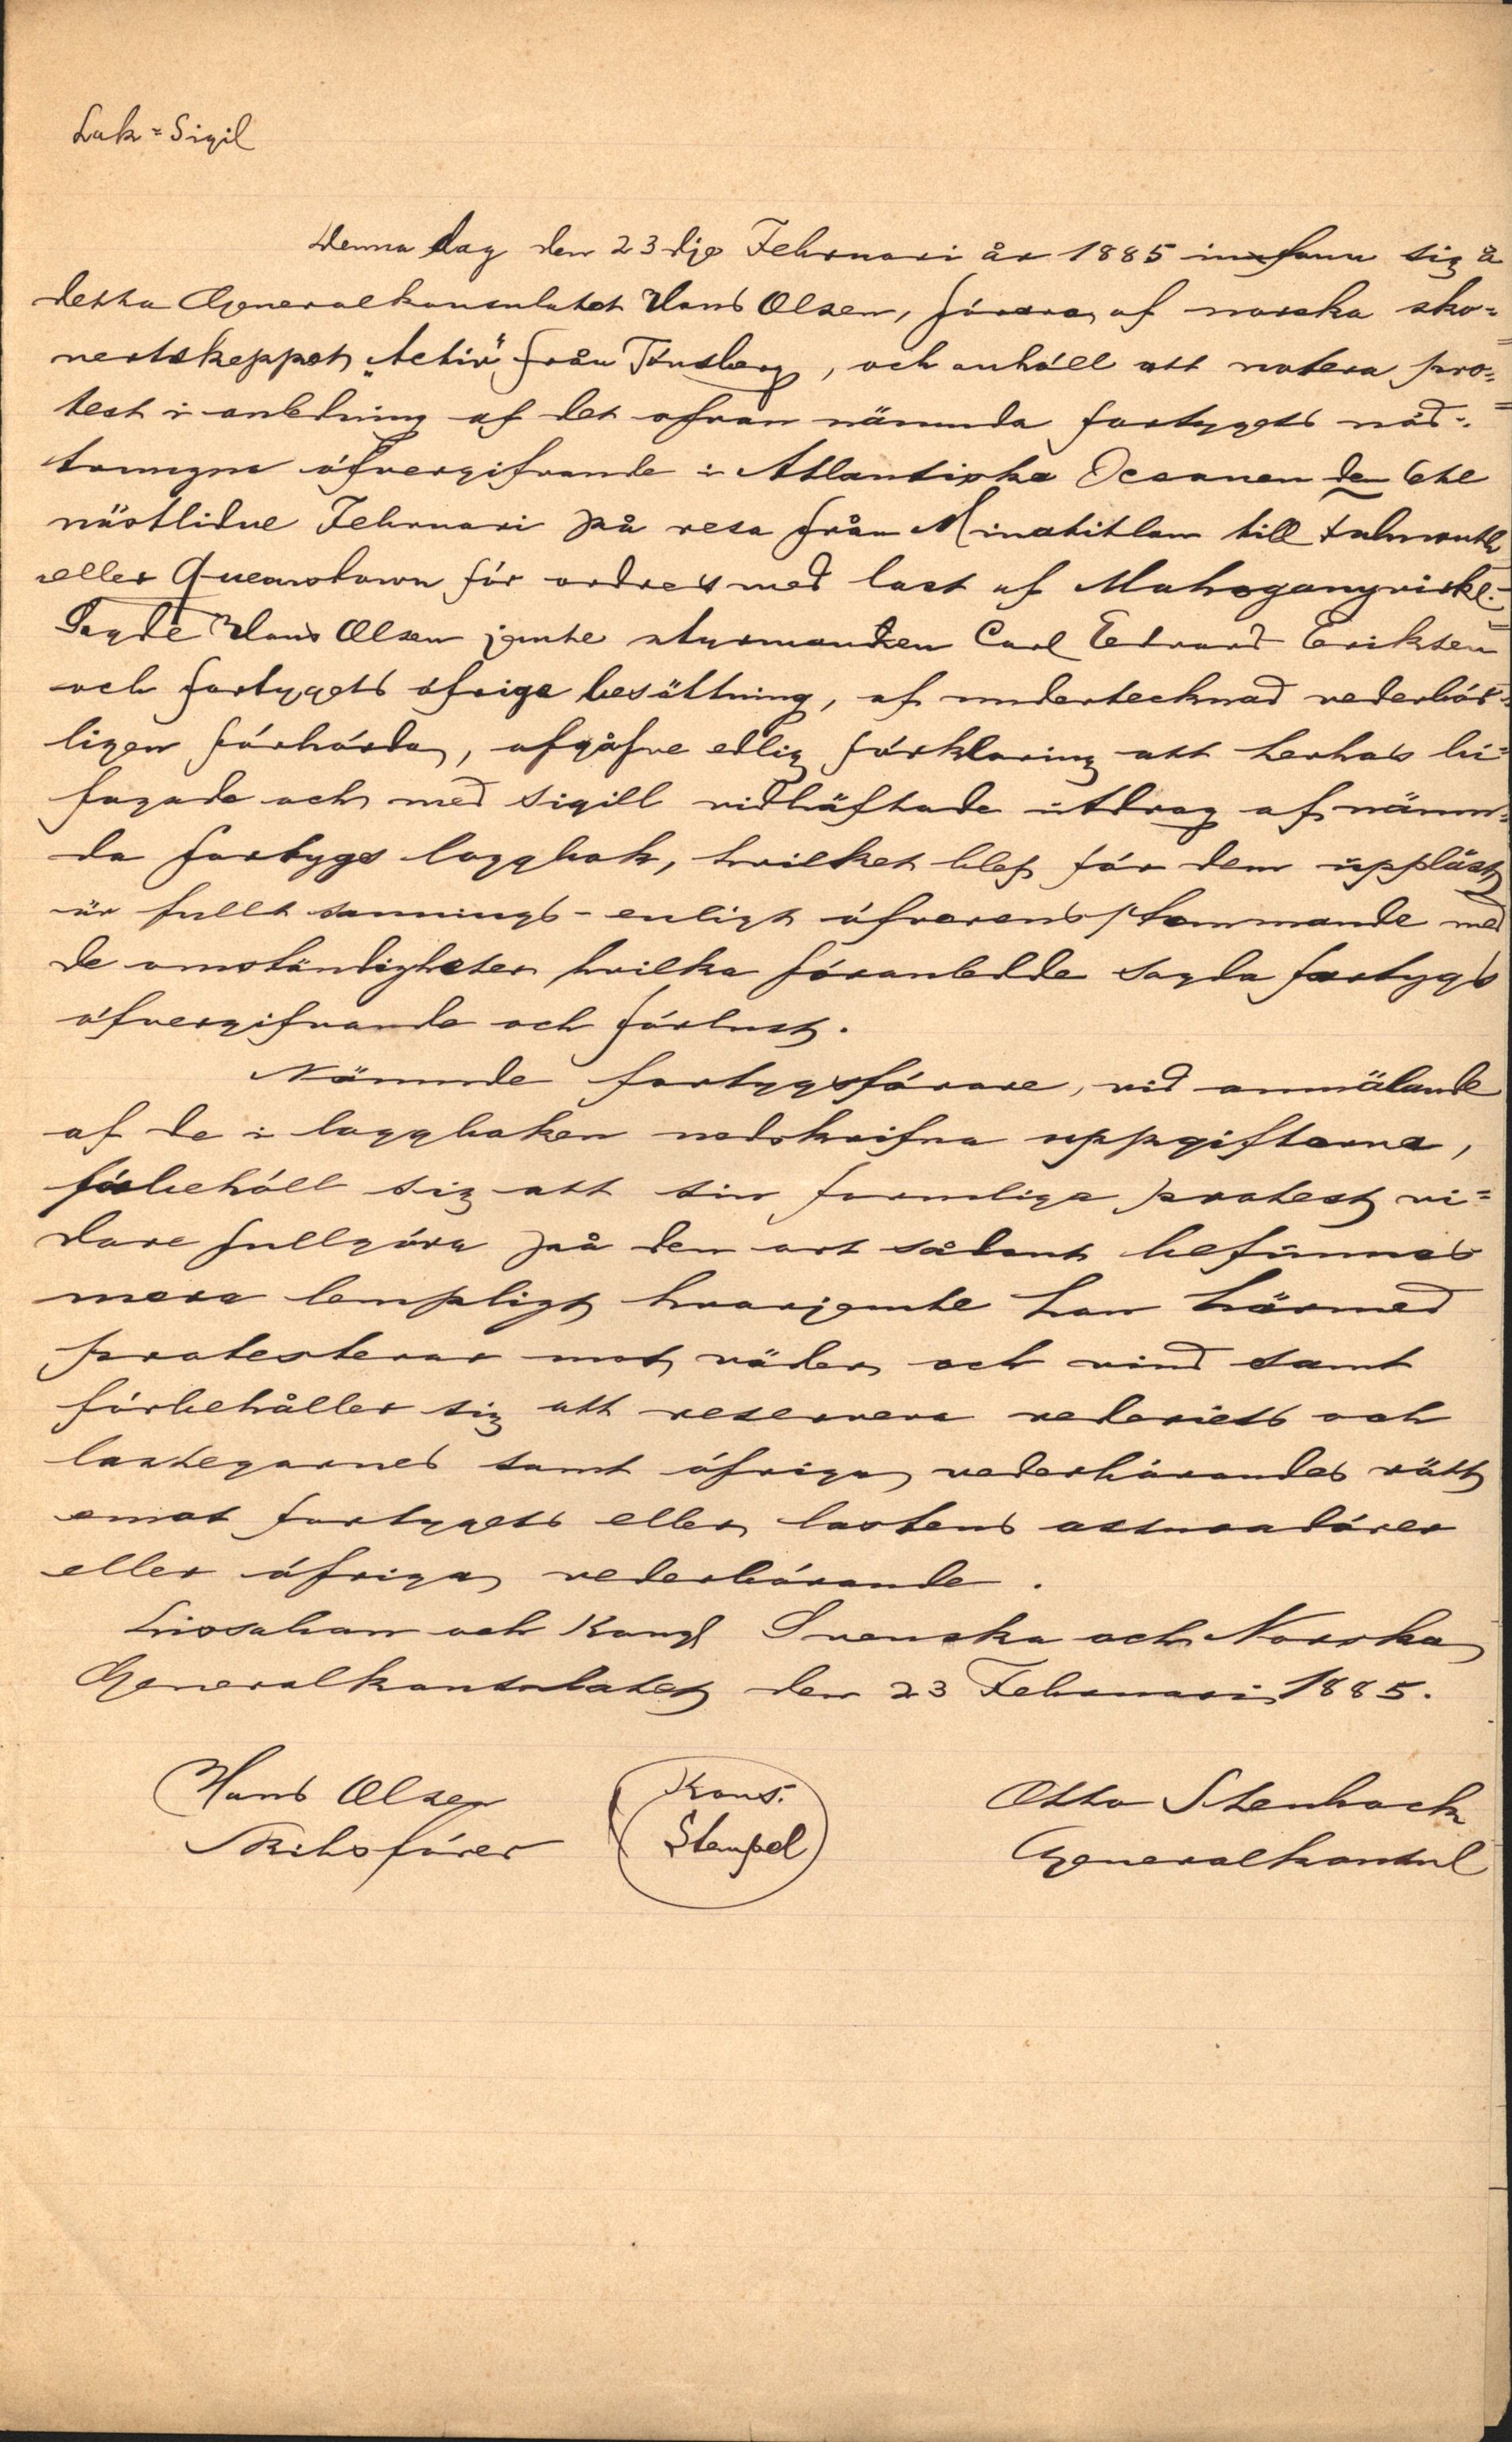 Lak = Sigil
Denna dag den 23dje Februari år 1885 infann sig å
detta Generalkonsulatet Hans Olsen, förare af norska sko=
nertskeppet "Activ" från Tönsberg, och anhöll att notera pro=
test i anledning af det ofvan nämnda fartygets nöd=
tvungna öfvergifvande i Atlantiska Oceanen den 6te
nästlidne Februari på resa från Minatitlan till Falmouth
eller Queenstown för ordres med last af Mahogany virke.
Sagde Hans Olsen jemte styrmanden Carl Edvard Eriksen
och fartygets öfriga besättning, af undertecknad vederbör=
ligen förhörda, afgåfve edlig förklaring att herhos bi=
fogade och med sigill vidhäftade utdrag af nämn=
da fartygs loggbok, hvilket blef för dem uppläst
är fullt sannings-enligt öfverensstemmande med
de omständigheter hvilka föranledde sagda fartygs
öfvergifvande och förlust.
Nämnde fartygsförare, vid anmälande
af de i loggboken nedskrifna uppgifterna,
förbehöll sig att sin formliga protest vi=
dare fullgöra på den ort sådant befinnes
mera lempligt hvarjemte han härmed
protesterar mot väder och vind samt
förbehåller sig att reservera rederiets och
lastegarnes samt öfriga vederbörandes rätt
emot fartygets eller lastens assuradörer
eller öfriga vederbörande.
Lissabon och Kongl Svenska och Norska
Generalkonsulatet den 23 Februari 1885.
Hans Olsen
Skibsförer
Kons.
Stempel
Otto Stenbock
Generalkonsul